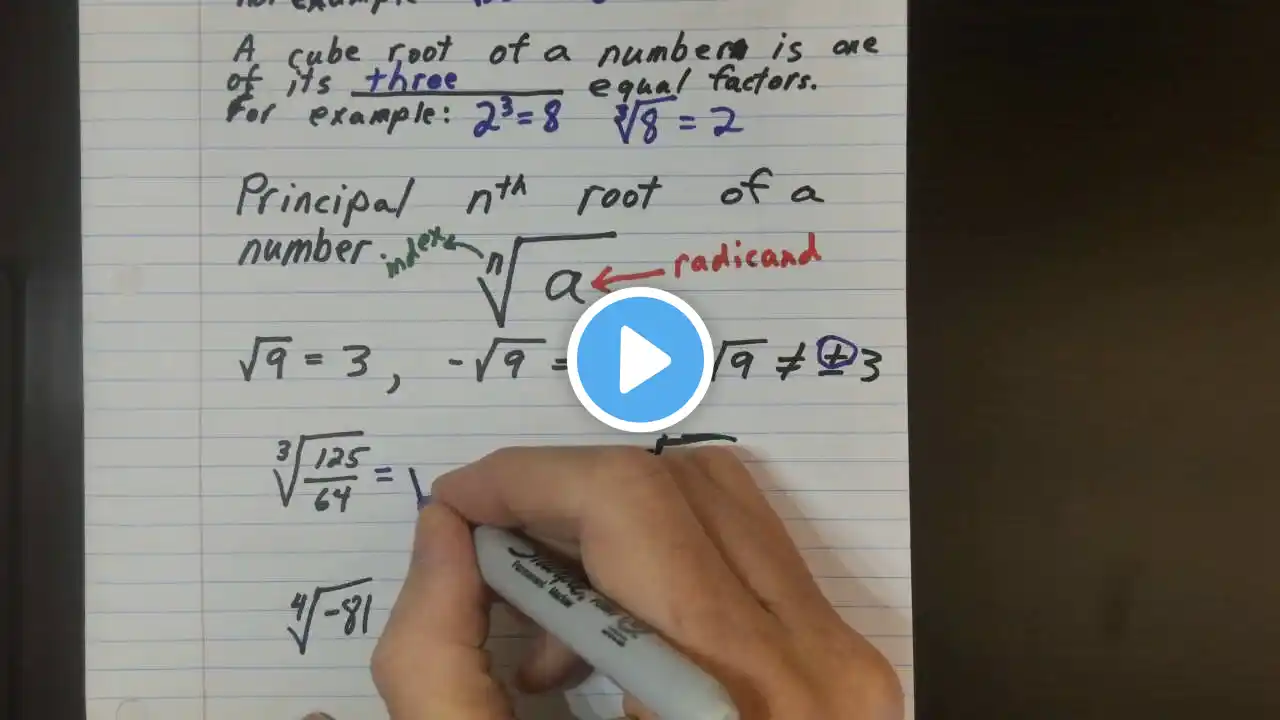 A cube root of a number is one
of its three equal factors.
For example: 2³=8 ∛8 = 2
Principal nth root of a
number index ⁿ√a ← radicand
√9 = 3, -√9 = √9 ≠ ± 3
³√125/64 =
⁴√-81